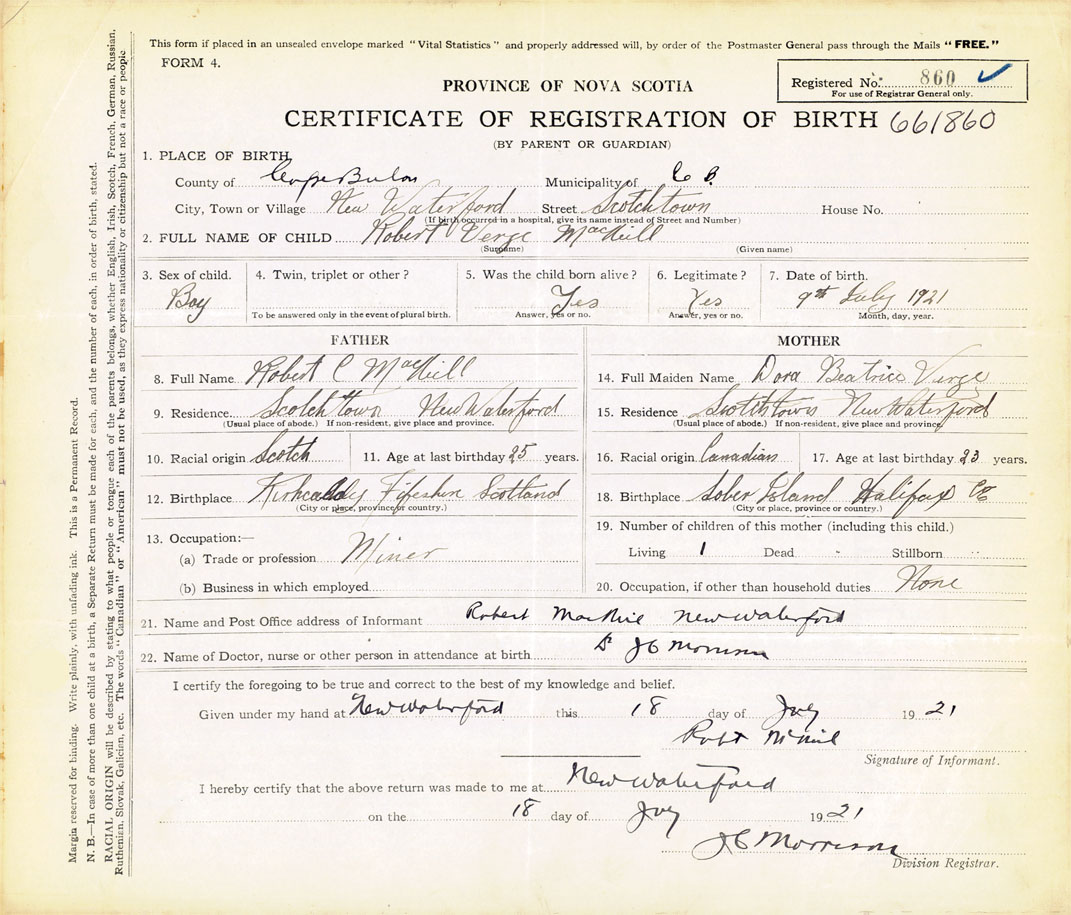 This form if placed in an unsealed envelope marked "Vital Statistics" and properly addressed will, by order of the Postmaster General pass through the Mails "FREE."
FORM 4.
Registered No. 860
For use of Registrar General only.
PROVINCE OF NOVA SCOTIA
CERTIFICATE OF REGISTRATION OF BIRTH 661860
(BY PARENT OR GUARDIAN)
1. PLACE OF BIRTH
County of Cape Breton Municipality of C B.
City, Town or Village New Waterford Street Scotchtown House No.
(If birth occurred in a hospital, give its name instead of Street and Number)
2. FULL NAME OF CHILD Robert Verge MacNeill
(Surname) (Given name)
3. Sex of child. 4. Twin, triplet or other? 5. Was the child born alive? 6. Legitimate? 7. Date of birth.
Boy Yes Yes 9th July 1921
To be answered only in the event of plural birth. Answer, yes or no. Answer, yes or no. Month, day, year.
FATHER
8. Full Name Robert C MacNeill
9. Residence Scotchtown New Waterford
(Usual place of abode.) If non-resident, give place and province.
10. Racial origin Scotch 11. Age at last birthday 25 years.
12. Birthplace Kirkcaldy Fifeshire Scotland
(City or place, province or country.)
13. Occupation:—
(a) Trade or profession Miner
(b) Business in which employed
MOTHER
14. Full Maiden Name Dora Beatrice Verge
15. Residence Scotchtown New Waterford
(Usual place of abode.) If non-resident, give place and province
16. Racial origin Canadian 17. Age at last birthday 23 years.
18. Birthplace Sober Island Halifax Co
(City or place, province or country.)
19. Number of children of this mother (including this child.)
Living 1 Dead - Stillborn
20. Occupation, if other than household duties None
21. Name and Post Office address of Informant Robert MacNeil New Waterford
22. Name of Doctor, nurse or other person in attendance at birth Dr J C Morrison
I certify the foregoing to be true and correct to the best of my knowledge and belief.
Given under my hand at New Waterford this 18 day of July 1921
Robt McNeil
Signature of Informant.
I hereby certify that the above return was made to me at New Waterford
on the 18 day of July 1921
J C Morrison
Division Registrar.
Margin reserved for binding. Write plainly, with unfading ink. This is a Permanent Record.
N. B.—In case of more than one child at a birth, a Separate Return must be made for each, and the number of each, in order of birth, stated.
RACIAL ORIGIN will be described by stating to what people or tongue each of the parents belongs, whether English, Irish, Scotch, French, German, Russian,
Ruthenian, Slovak, Galician, etc. The words "Canadian" or "American" must not be used, as they express nationality or citizenship but not a race or people